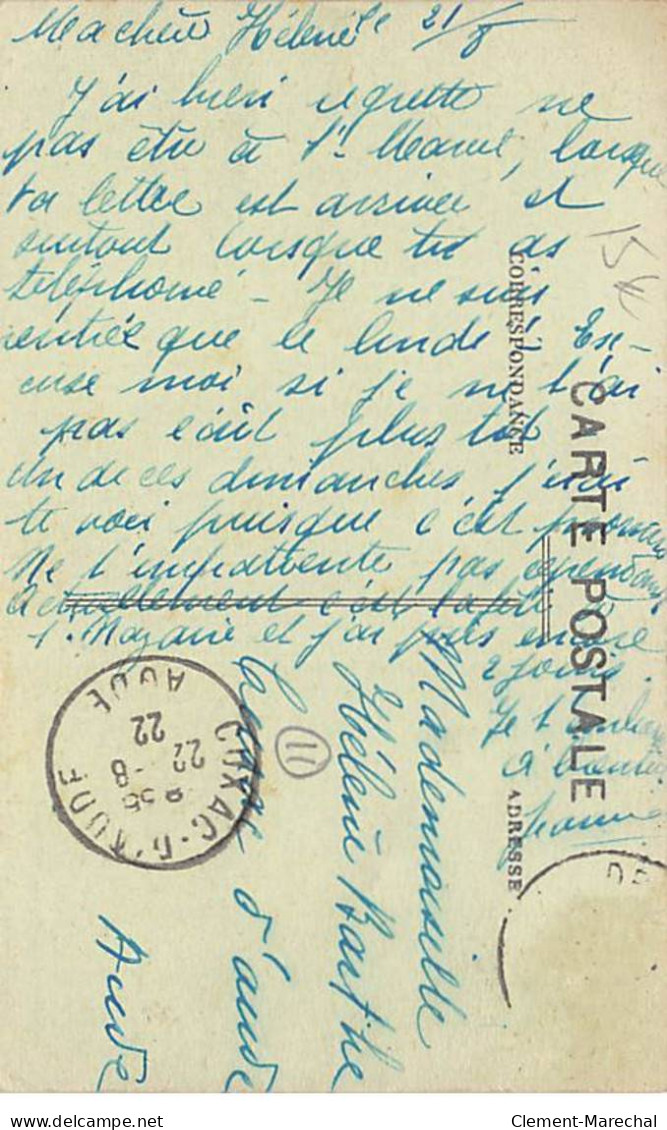 Ma chère Hélène 21/8
J'ai bien regretté ne
pas être à St-Marcel, lorsque
ta lettre est arrivée et
surtout lorsque tu as
téléphoné - Je ne suis
rentrée que le lundi. Ex-
cuse moi si je ne t'ai
pas écrit plus tôt
Un de ces dimanches j'irai
te voir puisque c'est
Ne t'impatiente pas cependant
Actuellement c'est la fête à
St. Nazaire et j'ai pris encore
2 jours.
Je t'embrasse
A bientôt
Jeanne
15
CARTE POSTALE
CORRESPONDANCE
ADRESSE
Mademoiselle
Hélène Barthe
Cuxac d'aude
Aude
11
CUXAC-D'AUDE
8 55
22 -8
22
AUDE
Clement-Marechal